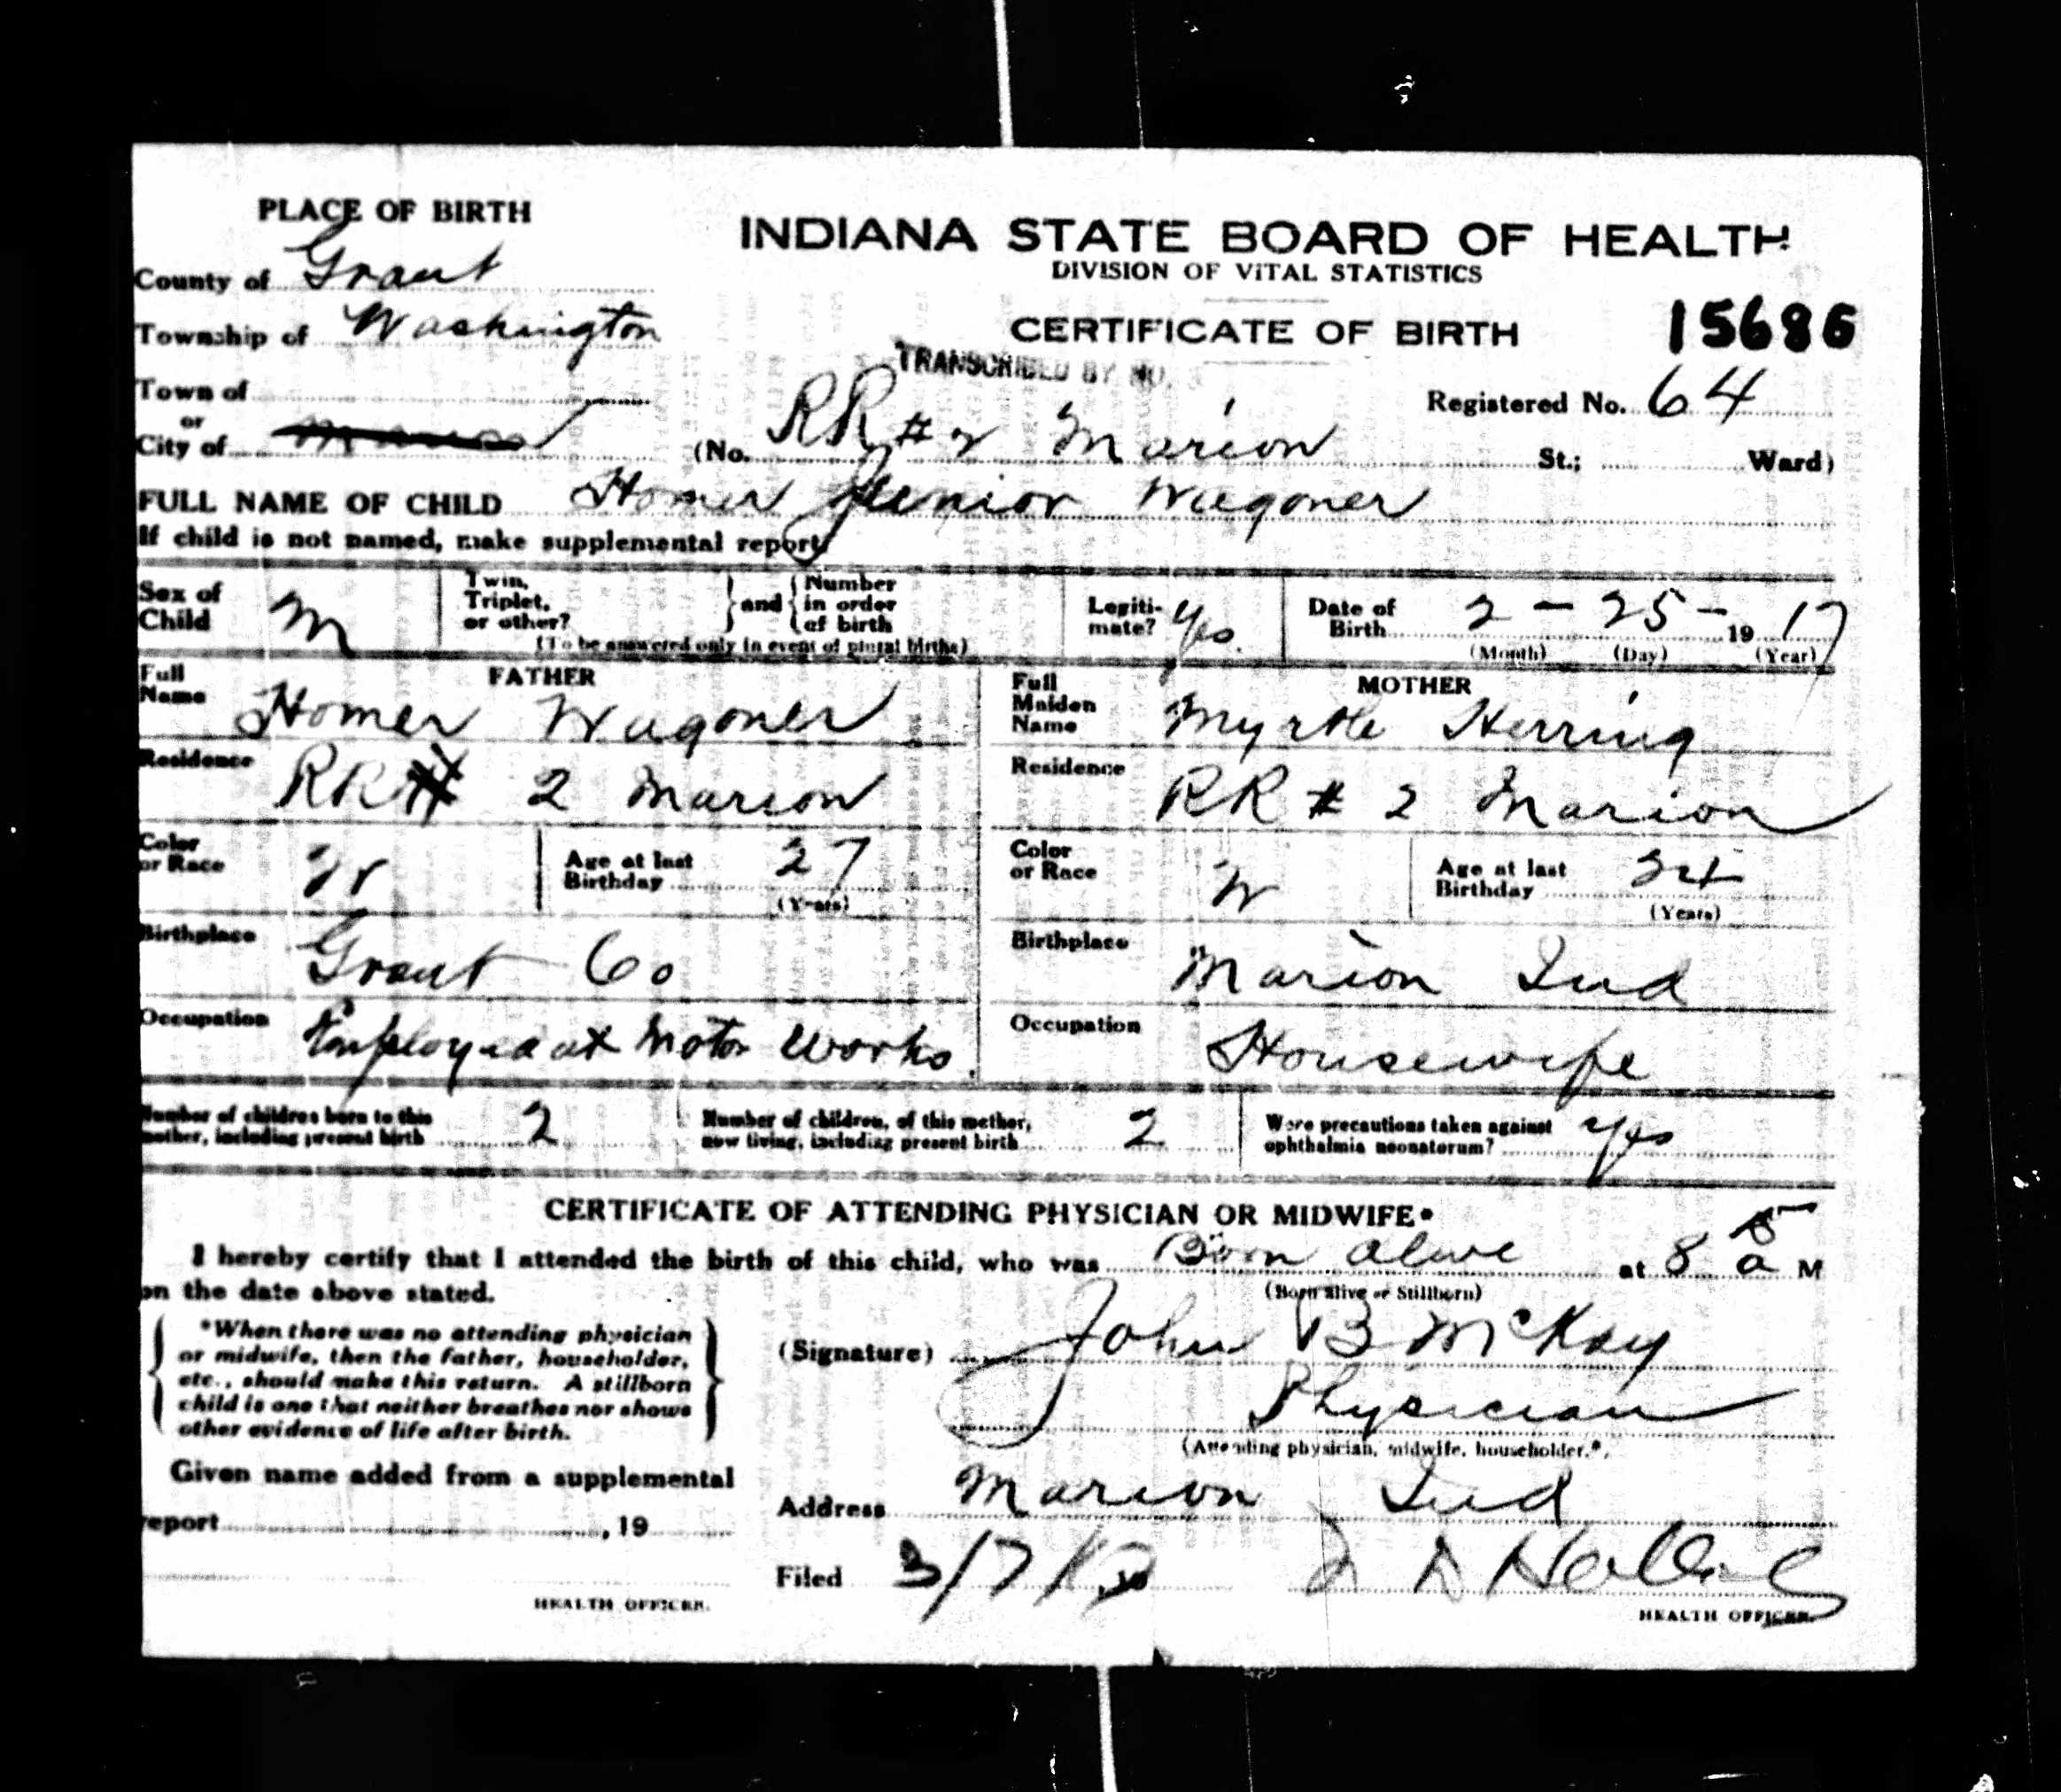 PLACE OF BIRTH
INDIANA STATE BOARD OF HEALTH
DIVISION OF VITAL STATISTICS
County of Grant
Township of Washington
CERTIFICATE OF BIRTH 15686
TRANSCRIBED BY NO.
Town of
or
City of
Registered No. 64
(No. RR #2 Marion St.; Ward)
FULL NAME OF CHILD Homer Junior Wagoner
If child is not named, make supplemental report
Sex of Child M
Twin, Triplet, or other? and Number in order of birth
(To be answered only in event of plural births)
Legitimate? Yes.
Date of Birth 2 - 25 - 1917
(Month) (Day) (Year)
FATHER
Full Name Homer Wagoner
Residence RR # 2 Marion
Color or Race W
Age at last Birthday 27
(Years)
Birthplace Grant Co
Occupation Employed at Motor Works
MOTHER
Full Maiden Name Myrtle Herring
Residence RR # 2 Marion
Color or Race W
Age at last Birthday
(Years)
Birthplace Marion Ind
Occupation Housewife
Number of children born to this mother, including present birth 2
Number of children, of this mother, now living, including present birth 2
Were precautions taken against ophthalmia neonatorum? Yes
CERTIFICATE OF ATTENDING PHYSICIAN OR MIDWIFE*
I hereby certify that I attended the birth of this child, who was Born alive at 8 a M
on the date above stated.
(Born alive or Stillborn)
*When there was no attending physician
or midwife, then the father, householder,
etc., should make this return. A stillborn
child is one that neither breathes nor shows
other evidence of life after birth.
(Signature) John B McKay
Physician
(Attending physician, midwife, householder.*)
Given name added from a supplemental
report , 19
HEALTH OFFICER.
Address Marion Ind
Filed 3/7/
HEALTH OFFICER.